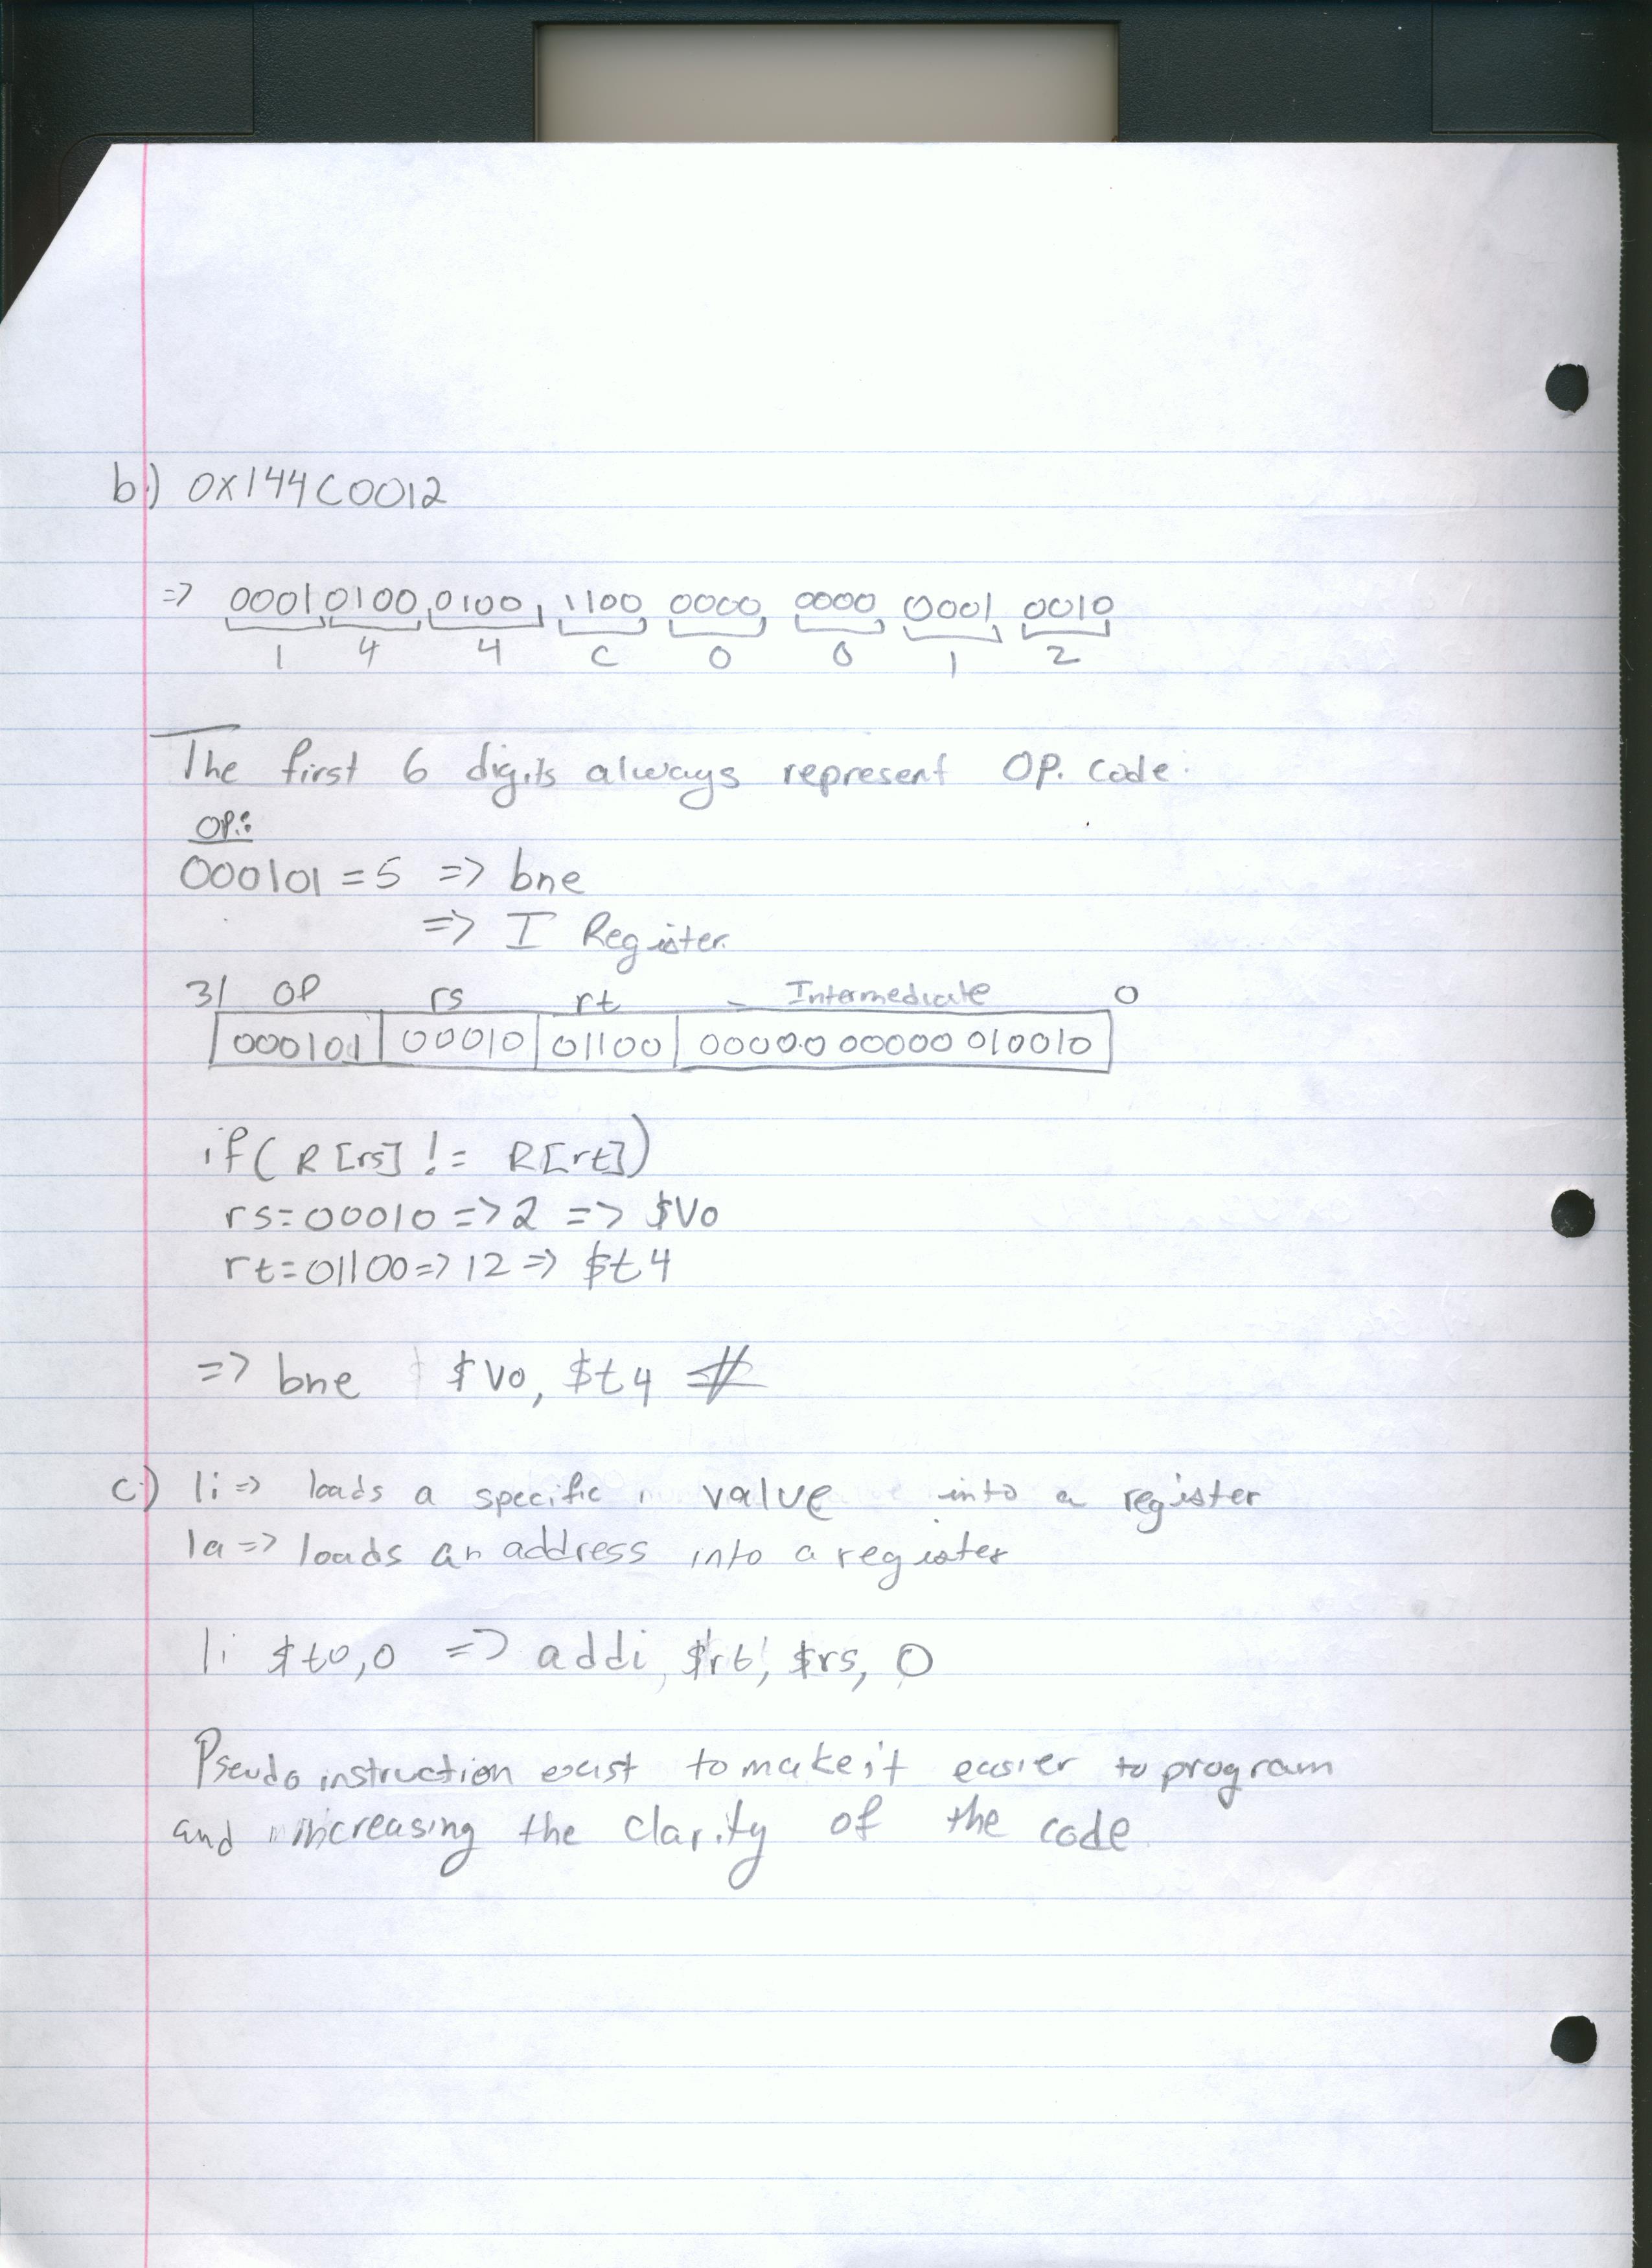 b.) 0x144C0012
=> 0001 0100 0100 1100 0000 0000 0001 0010
1 4 4 C 0 0 1 2
The first 6 digits always represent OP. code.
OP.:
000101 = 5 => bne
=> I Register.
31 OP rs rt Intermediate 0
000101 00010 01100 00000 00000 010010
if( R[rs] != R[rt])
rs=00010 => 2 => $V0
rt=01100 => 12 => $t4
=> bne $V0, $t4 #
c.) li => loads a specific value into a register
la => loads an address into a register
li $t0,0 => addi, $rt, $rs, 0
Pseudo instruction exist to make it easier to program
and increasing the clarity of the code.